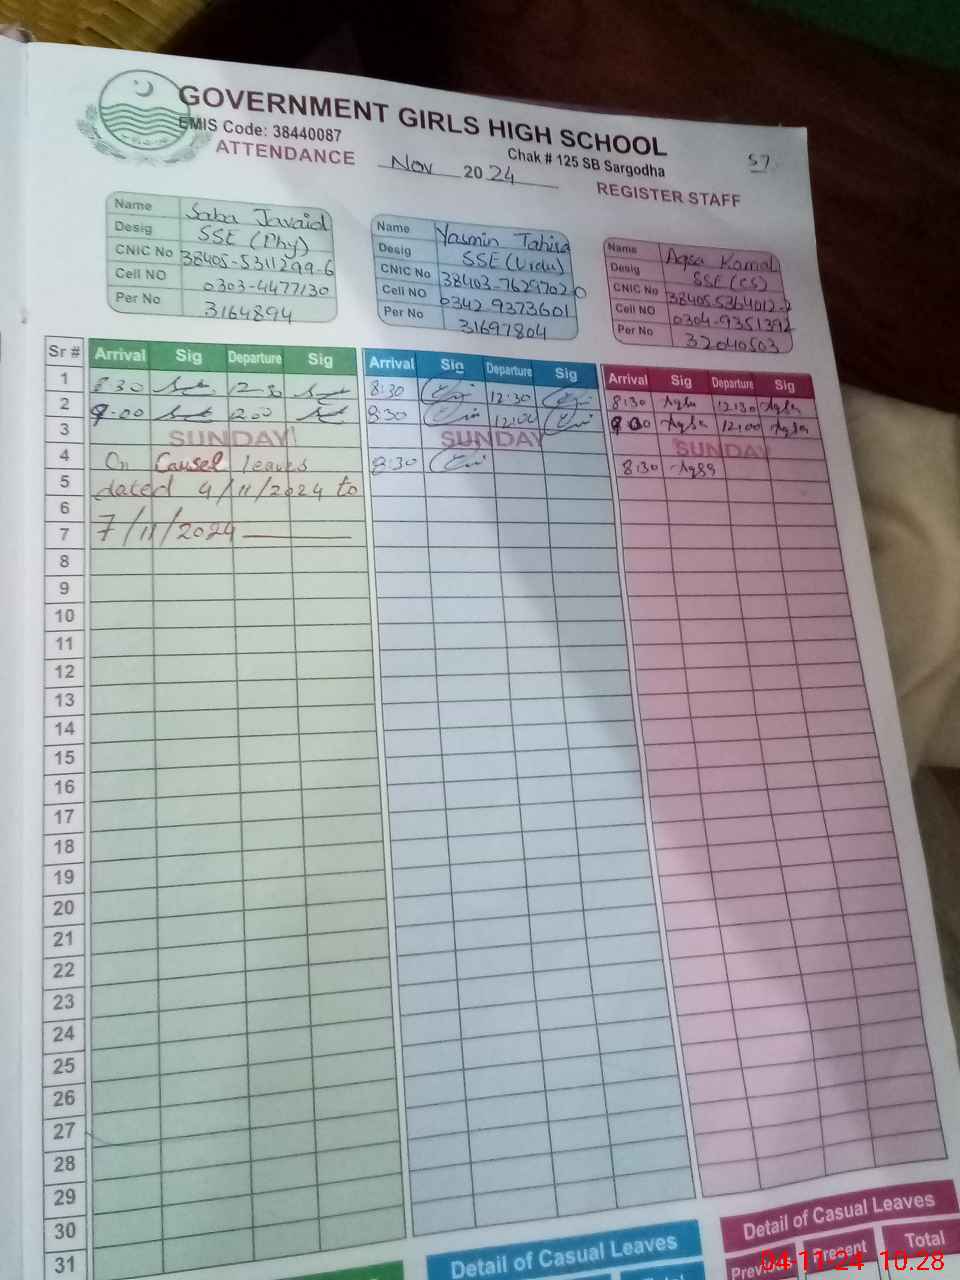 GOVERNMENT GIRLS HIGH SCHOOL
EMIS Code: 38440087
Chak # 125 SB Sargodha
57
ATTENDANCE Nov 2024 REGISTER STAFF
Name Saba Javaid
Desig SSE (Phy)
CNIC No 38405-5311299-6
Cell NO 0303-4477130
Per No 3164894
Name Yasmin Tahira
Desig SSE (Urdu)
CNIC No
Cell NO 0342 9373601
Per No 31697804
Name Aqsa Komal
Desig SSE (CS)
CNIC No
Cell NO 0304-9351392
Per No 32040503
Sr # Arrival Sig Departure Sig Arrival Sig Departure Sig Arrival Sig Departure Sig
1 8:30 12:30 8:30 12:30 8:30 Aqsa 12:30 Aqsa
2 9:00 1200 8:30 12:00 9:00 Aqsa 12:00 Aqsa
3 SUNDAY SUNDAY SUNDAY
4 On Causel leaves 8:30 8:30 Aqsa
5 dated 4/11/2024 to
6
7 7/11/2024
8
9
10
11
12
13
14
15
16
17
18
19
20
21
22
23
24
25
26
27
28
29
30
31
Detail of Casual Leaves
Total
Detail of Casual Leaves
Present Total
04-11-24 10:28